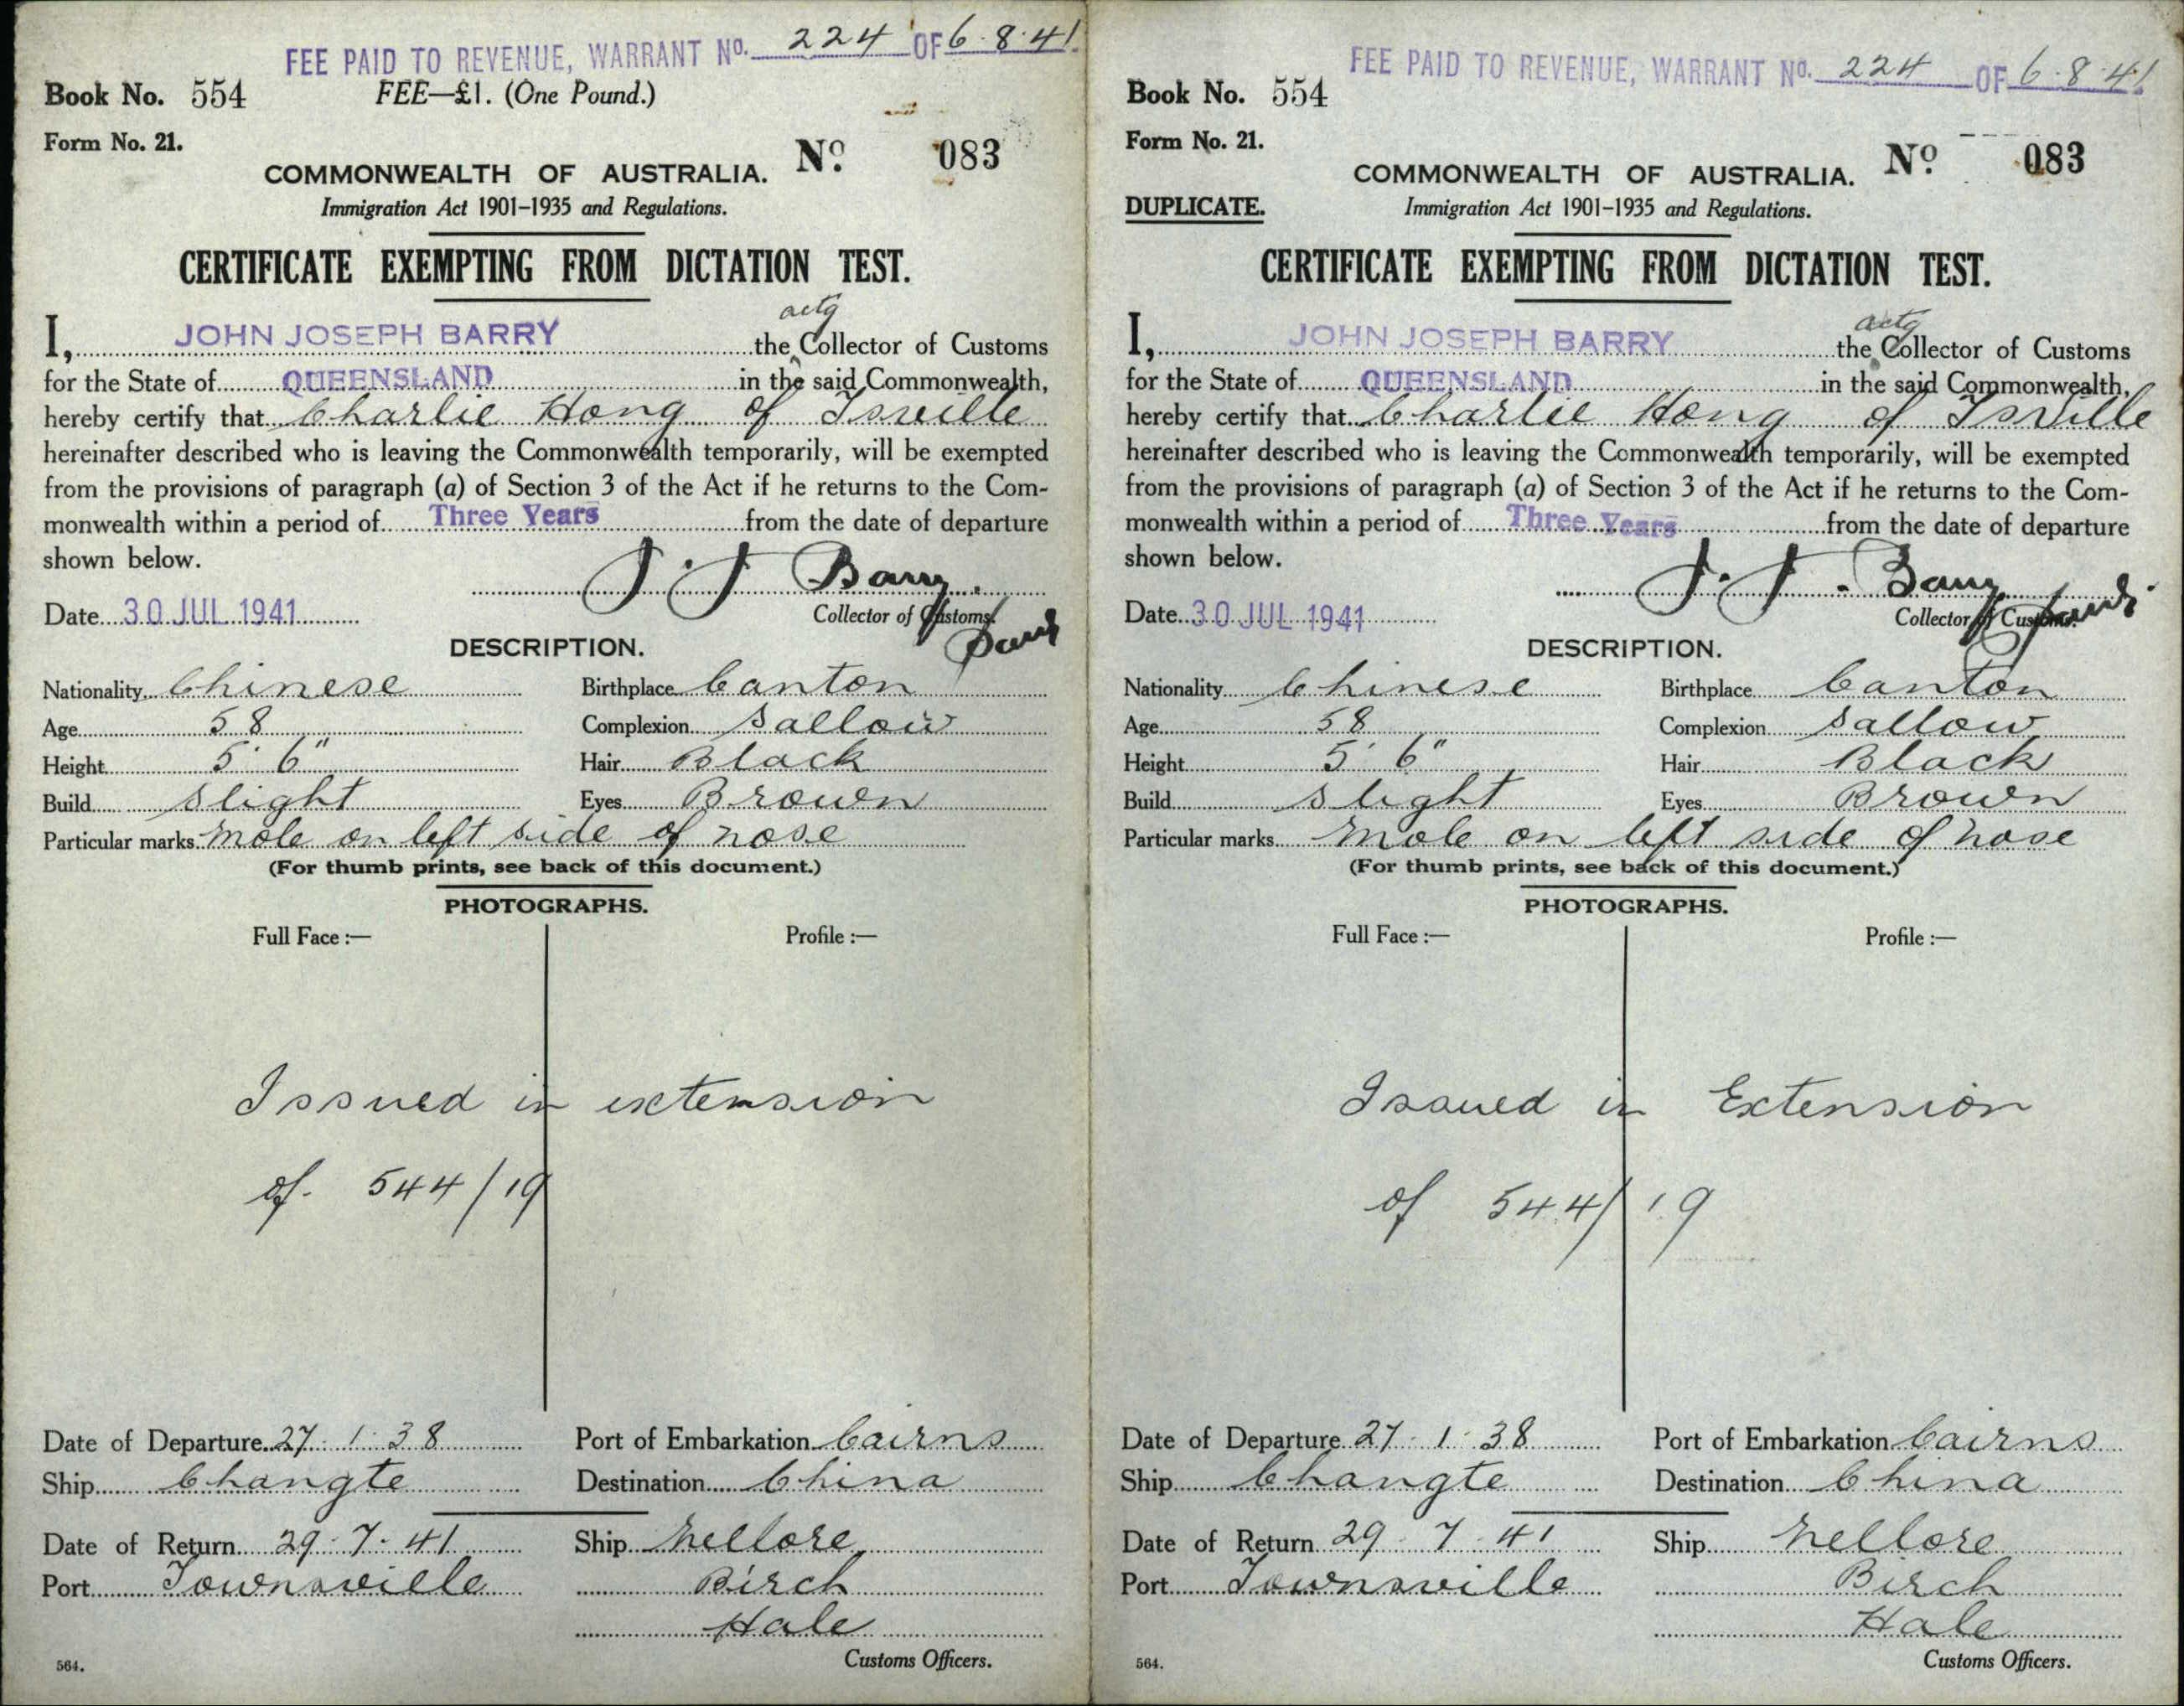 FEE PAID TO REVENUE, WARRANT No. 224 OF 6.8.41
Book No. 554 FEE—£1. (One Pound.)
Form No. 21.
No. 083
COMMONWEALTH OF AUSTRALIA.
Immigration Act 1901–1935 and Regulations.
CERTIFICATE EXEMPTING FROM DICTATION TEST.
actg
I, JOHN JOSEPH BARRY the Collector of Customs
for the State of QUEENSLAND in the said Commonwealth,
hereby certify that Charlie Hong of Tsville
hereinafter described who is leaving the Commonwealth temporarily, will be exempted
from the provisions of paragraph (a) of Section 3 of the Act if he returns to the Com-
monwealth within a period of Three Years from the date of departure
shown below.
J. J. Barry
Date 30 JUL 1941 Collector of Customs.
DESCRIPTION.
Nationality Chinese Birthplace Canton
Age 58 Complexion Sallow
Height 5' 6" Hair Black
Build Slight Eyes Brown
Particular marks Mole on left side of nose
(For thumb prints, see back of this document.)
PHOTOGRAPHS.
Full Face :— Profile :—
Issued in extension
of 544/19
Date of Departure 27.1.38 Port of Embarkation Cairns
Ship Changte Destination China
Date of Return 29.7.41 Ship Nellore
Port Townsville Birch
Hale
564. Customs Officers.
FEE PAID TO REVENUE, WARRANT No. 224 OF 6.8.41
Book No. 554
Form No. 21.
No. 083
COMMONWEALTH OF AUSTRALIA.
DUPLICATE. Immigration Act 1901–1935 and Regulations.
CERTIFICATE EXEMPTING FROM DICTATION TEST.
actg
I, JOHN JOSEPH BARRY the Collector of Customs
for the State of QUEENSLAND in the said Commonwealth,
hereby certify that Charlie Hong of Tsville
hereinafter described who is leaving the Commonwealth temporarily, will be exempted
from the provisions of paragraph (a) of Section 3 of the Act if he returns to the Com-
monwealth within a period of Three Years from the date of departure
shown below.
J. J. Barry
Date 30 JUL 1941 Collector of Customs.
DESCRIPTION.
Nationality Chinese Birthplace Canton
Age 58 Complexion Sallow
Height 5' 6" Hair Black
Build Slight Eyes Brown
Particular marks Mole on left side of nose
(For thumb prints, see back of this document.)
PHOTOGRAPHS.
Full Face :— Profile :—
Issued in Extension
of 544/19
Date of Departure 27.1.38 Port of Embarkation Cairns
Ship Changte Destination China
Date of Return 29.7.41 Ship Nellore
Port Townsville Birch
Hale
564. Customs Officers.